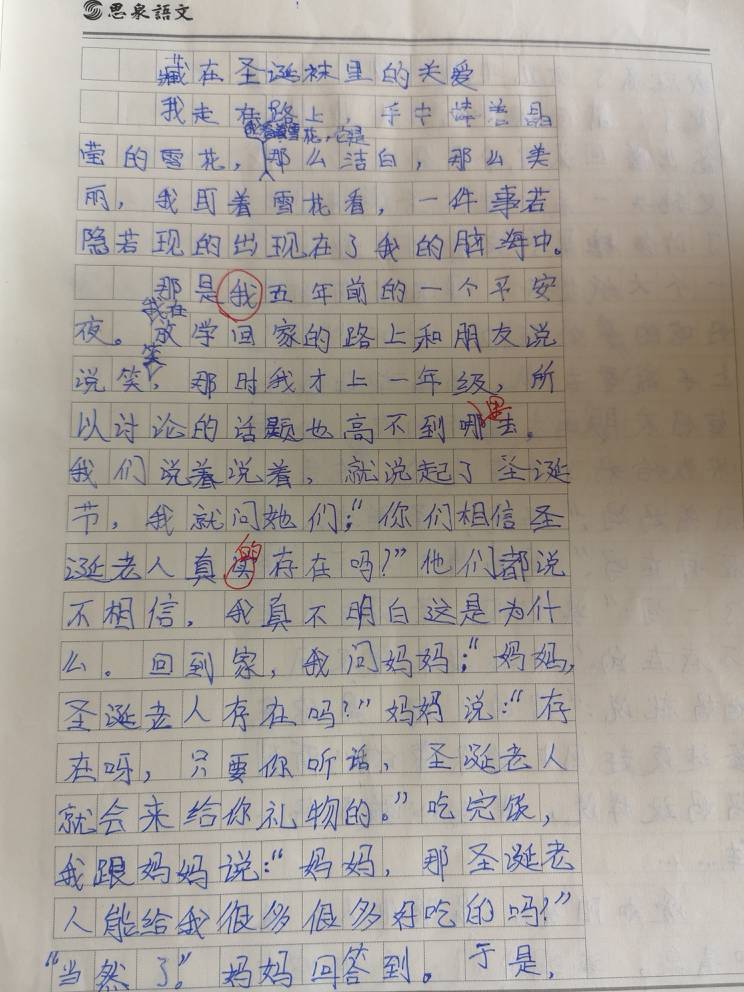 思泉語文
藏在圣诞袜里的关爱
我走在路上,手中捧着晶
我看着雪花,它是
莹的雪花,那么洁白,那么美
丽,我盯着雪花看,一件事若
隐若现的出现在了我的脑海中。
那是我五年前的一个平安
我在
夜。放学回家的路上和朋友说
笑
说笑,那时我才上一年级,所
以讨论的话题也高不到哪里去。
我们说着说着,就说起了圣诞
节,我就问她们:“你们相信圣
的
诞老人真实存在吗?”他们都说
不相信,我真不明白这是为什
么。回到家,我问妈妈:“妈妈,
圣诞老人存在吗?”妈妈说:“存
在呀,只要你听话,圣诞老人
就会来给你礼物的。”吃完饭,
我跟妈妈说:“妈妈,那圣诞老
人能给我很多很多好吃的吗?”
“当然了。”妈妈回答到。于是,